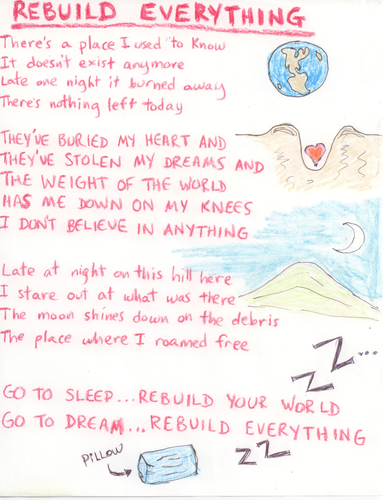 REBUILD EVERYTHING
There's a place I used to know
It doesn't exist anymore
Late one night it burned away
There's nothing left today
THEY'VE BURIED MY HEART AND
THEY'VE STOLEN MY DREAMS AND
THE WEIGHT OF THE WORLD
HAS ME DOWN ON MY KNEES
I DON'T BELIEVE IN ANYTHING
Late at night on this hill here
I stare out at what was there
The moon shines down on the debris
The place where I roamed free
Z...
Z
GO TO SLEEP...REBUILD YOUR WORLD
GO TO DREAM...REBUILD EVERYTHING
PILLOW
Z Z